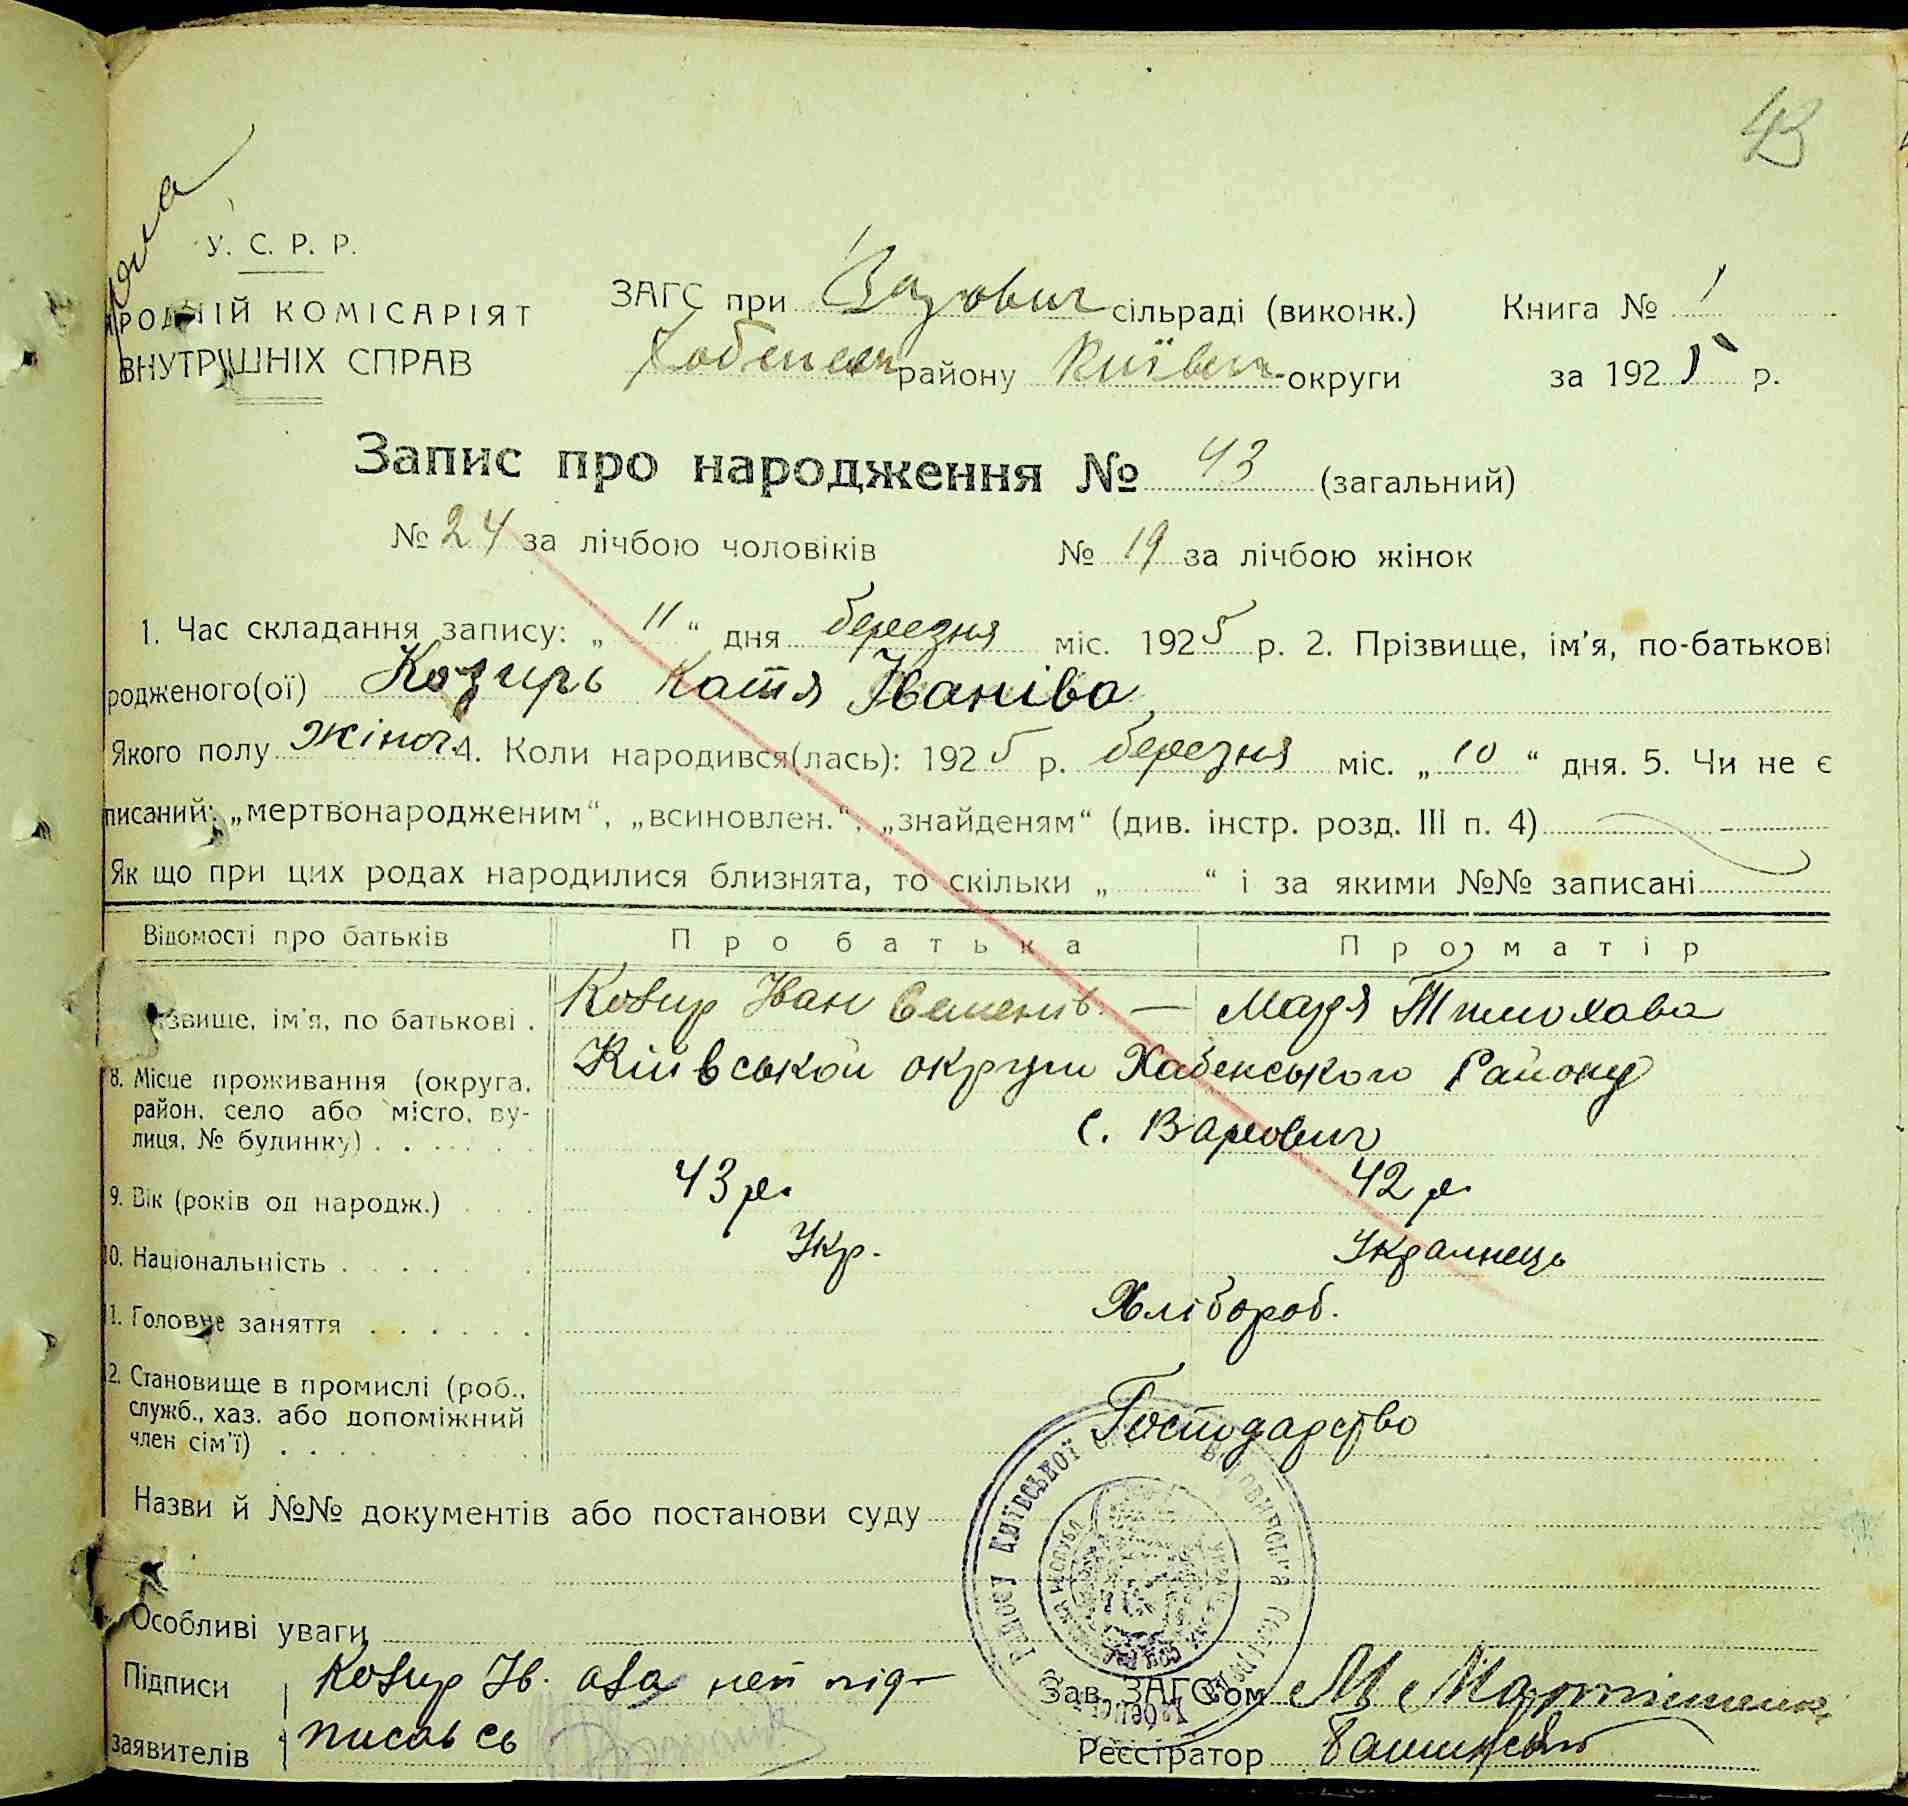 43
У. С. Р. Р.
РОДНІЙ КОМІСАРІЯТ
ВНУТРІШНІХ СПРАВ
ЗАГС при Варович сільраді (виконк.)
Хабенськ району Київськ округи
Книга № 1
за 1925 р.
Запис про народження № 43 (загальний)
№ 24 за лічбою чоловіків № 19 за лічбою жінок
1. Час складання запису: „ 11 “ дня березня міс. 1925 р. 2. Прізвище, ім'я, по-батькові
родженого(ої) Козирь Катя Іваніва
Якого полу жіноч 4. Коли народився(лась): 1925 р. березня міс. „ 10 “ дня. 5. Чи не є
писаний: „мертвонародженим“, „всиновлен.“, „знайденям“ (див. інстр. розд. III п. 4)
Як що при цих родах народилися близнята, то скільки „ “ і за якими №№ записані
Відомості про батьків Про батька Про матір
звище, ім'я, по батькові . Козир Іван Семенів. — Мазя Тимохова
8. Місце проживання (округа, район, село або місто, ву-
лиця, № будинку) Київськой округи Хабенського Району
с. Варовичі
9. Вік (років од народж.) 43 р. 42 р.
10. Національність Укр. Украинець
11. Головне заняття Хлібороб.
12. Становище в промислі (роб.,
служб., хаз. або допоміжний
член сім'ї) Господарство
Назви й №№ документів або постанови суду
Особливі уваги
Підписи Козир Ів. аза неи під-
заявителів писавсь
Зав. ЗАГСом
Реєстратор
Району Київської